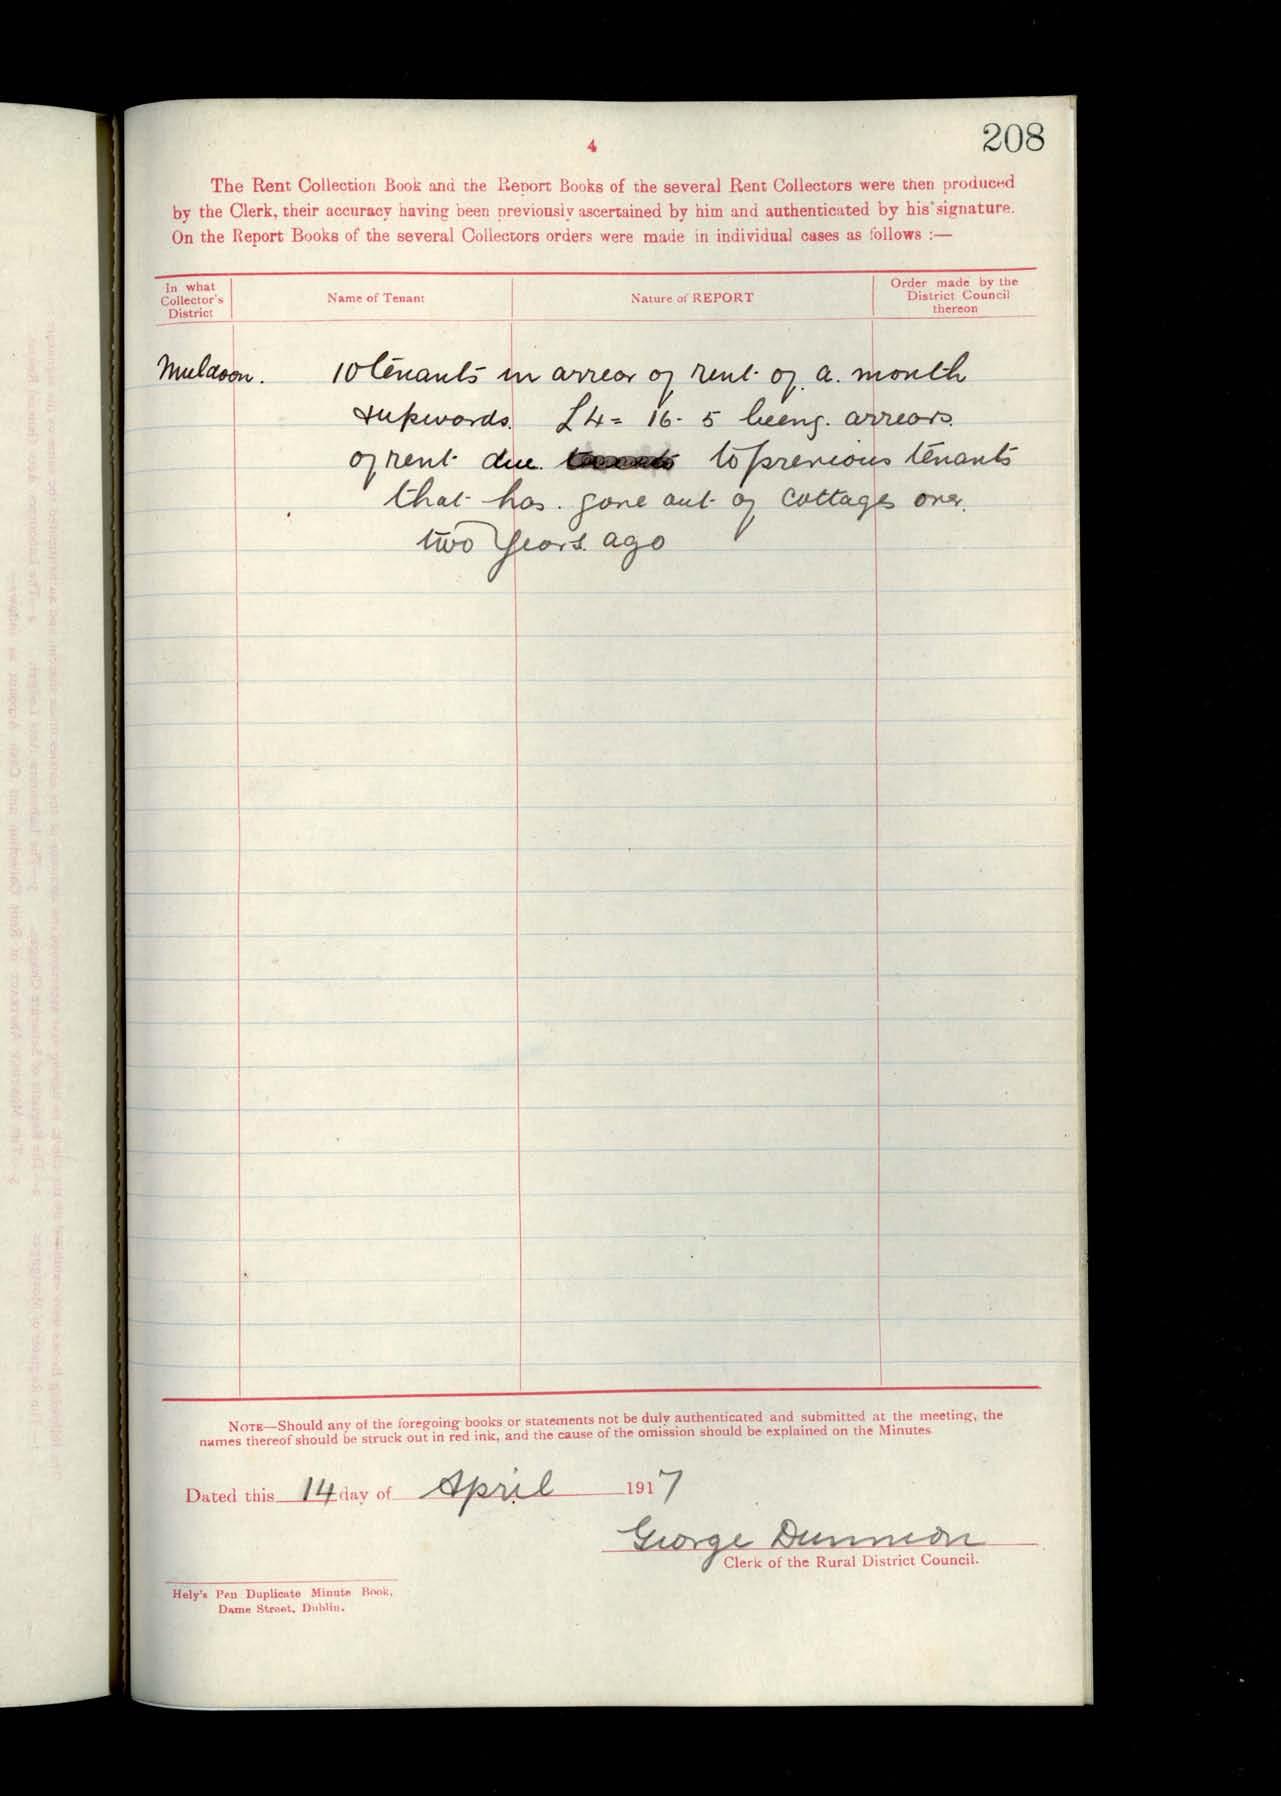 208
4
The Rent Collection Book and the Report Books of the several Rent Collectors were then produced
by the Clerk, their accuracy having been previously ascertained by him and authenticated by his signature.
On the Report Books of the several Collectors orders were made in individual cases as follows :—
In what Collector's District
Name of Tenant
Nature of REPORT
Order made by the District Council thereon
Muldoon. 10 tenants in arrear of rent of a month
& upwards. £4=16-5 being arrears
of rent due to previous tenants
that has gone out of cottages over
two years ago
NOTE—Should any of the foregoing books or statements not be duly authenticated and submitted at the meeting, the
names thereof should be struck out in red ink, and the cause of the omission should be explained on the Minutes
Dated this 14 day of April 1917
George Dunnion
Clerk of the Rural District Council.
Hely's Pen Duplicate Minute Book,
Dame Street, Dublin.